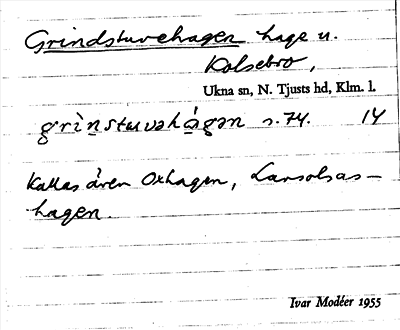 Grindstuvehagen hage u.
Kolsebro,
Ukna sn, N. Tjusts hd, Klm. l.
grìnstuvəhágən s. 74. 14
Kallas även Oxhagen, Larsolsas-
hagen.
Ivar Modéer 1955